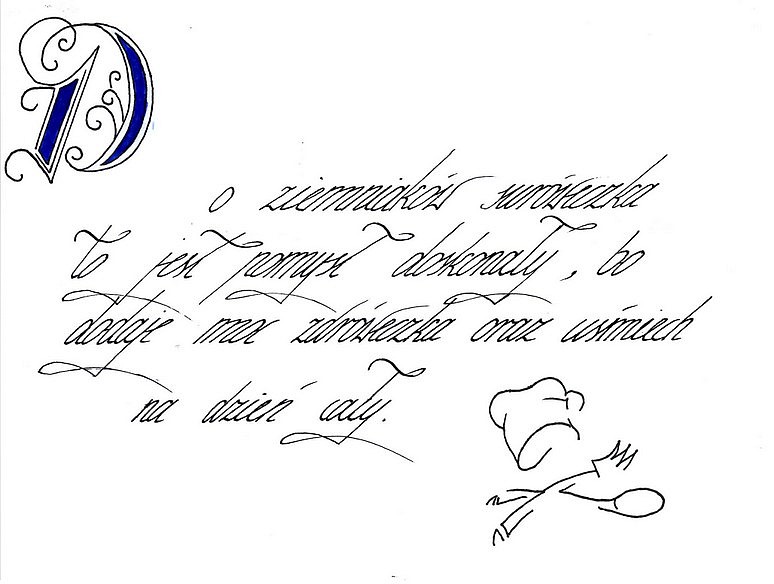 Do ziemniaków suróweczka
to jest pomysł doskonały, bo
dodaje moc zdróweczka oraz uśmiech
na dzień cały.